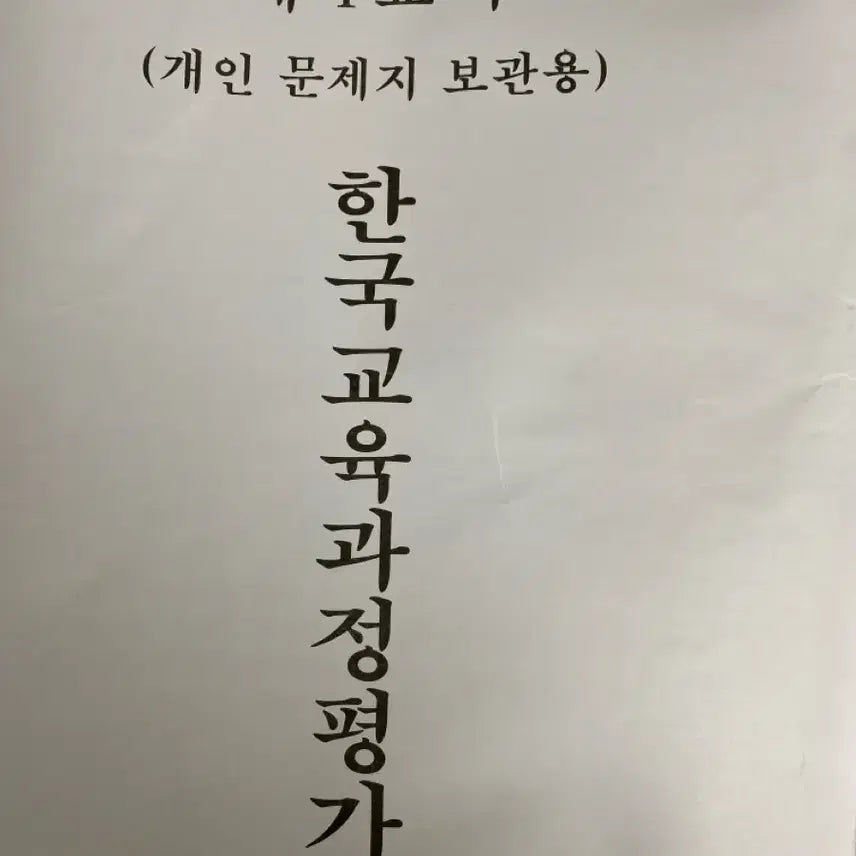 (개인 문제지 보관용)
한국교육과정평가